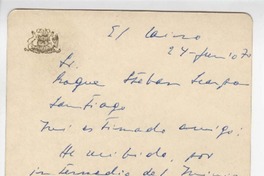 El Cairo
24-Junio 70
Sr.
Roque Esteban Scarpa
Santiago
Mi estimado amigo:
He recibido, por
intermedio del Minis